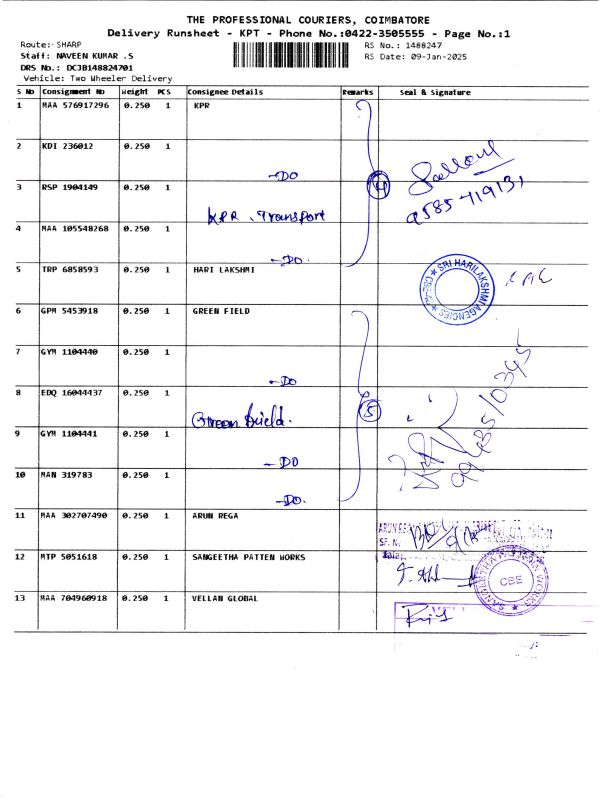 THE PROFESSIONAL COURIERS, COIMBATORE
Delivery Runsheet - KPT - Phone No.:0422-3505555 - Page No.:1
Route:- SHARP
RS No.: 1488247
Staff: NAVEEN KUMAR .S
RS Date: 09-Jan-2025
DRS No.: DCJB148824701
Vehicle: Two Wheeler Delivery
S No Consignment No Weight PCS Consignee Details Remarks Seal & Signature
1 MAA 576917296 0.250 1 KPR
2 KDI 236012 0.250 1
-DO
3 RSP 1904149 0.250 1
4
KPR . Transport
9585 419131
4 MAA 105548268 0.250 1
-DO.
5 TRP 6858593 0.250 1 HARI LAKSHMI
SRI HARILAKSHMI AGENCIES
6 GPM 5453918 0.250 1 GREEN FIELD
7 GYM 1104440 0.250 1
-DO
8 EDQ 16044437 0.250 1
5
Green field.
9 GYM 1104441 0.250 1
- DO
10 MAN 319783 0.250 1
-DO.
11 MAA 302707490 0.250 1 ARUN REGA
12 MTP 5051618 0.250 1 SANGEETHA PATTEN WORKS
SANGEETHA PATTERN WORKS
CBE
13 MAA 704960918 0.250 1 VELLAN GLOBAL